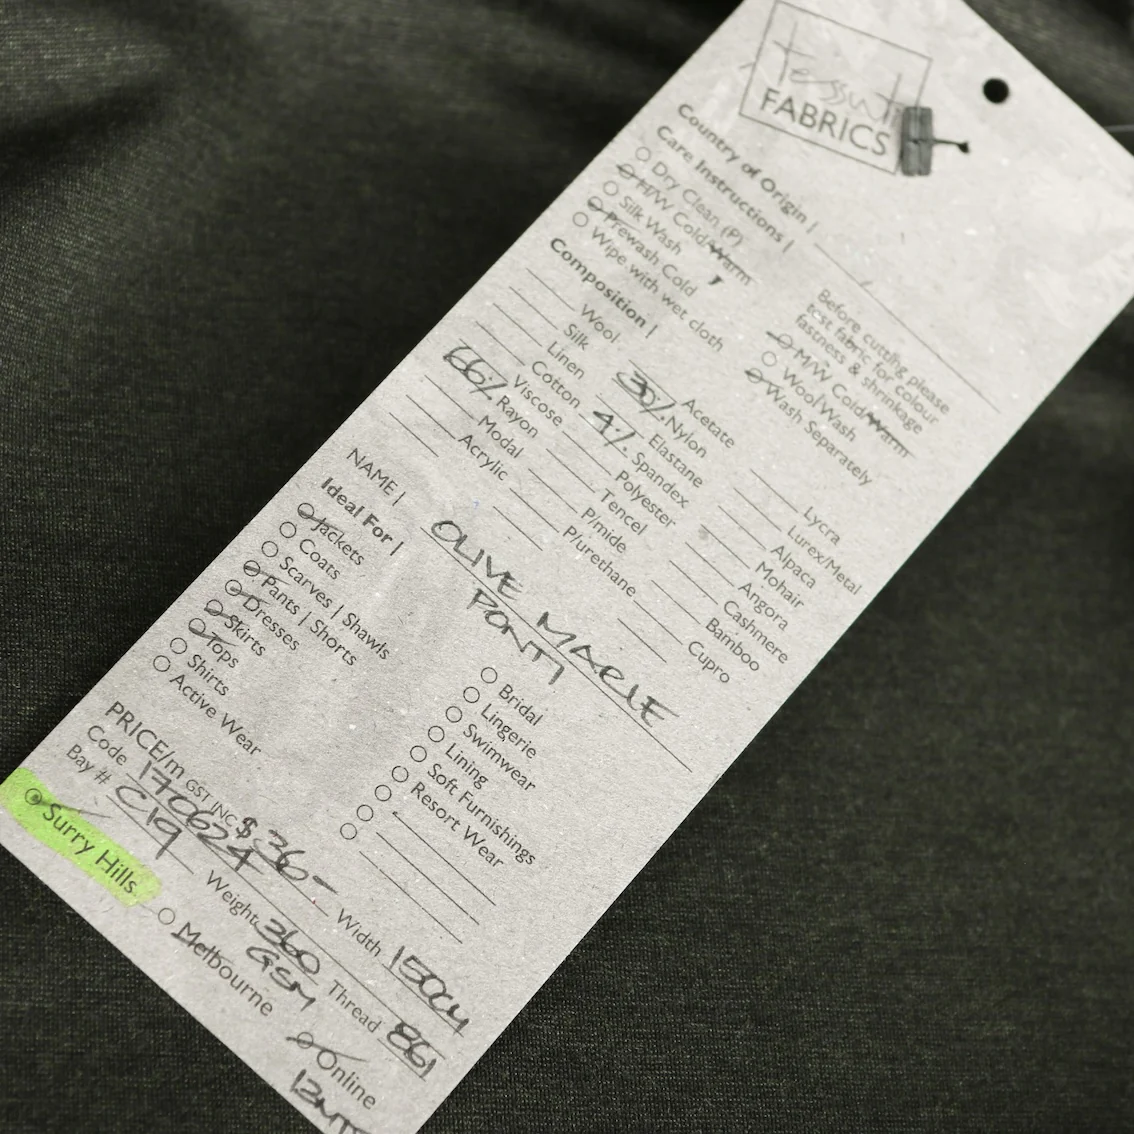 tessuti
FABRICS
Country of Origin |
Care Instructions |
Dry Clean (P)
H/W Cold/Warm
Silk Wash
Prewash Cold
Wipe with wet cloth
Before cutting please
test fabric for colour
fastness & shrinkage
M/W Cold/Warm
Wool Wash
Wash Separately
Composition |
Wool
Silk
Linen
Cotton
Viscose
66% Rayon
Modal
Acrylic
Acetate
30% Nylon
Elastane
4% Spandex
Polyester
Tencel
P/mide
P/urethane
Lycra
Lurex/Metal
Alpaca
Mohair
Angora
Cashmere
Bamboo
Cupro
NAME | OLIVE MARLE
PONTI
Ideal For |
Jackets
Coats
Scarves | Shawls
Pants | Shorts
Dresses
Skirts
Tops
Shirts
Active Wear
Bridal
Lingerie
Swimwear
Lining
Soft Furnishings
Resort Wear
PRICE/m GST INC $36- Width 150CM
Code 170624 Weight 360 GSM Thread 861
Bay # C19
Surry Hills Melbourne Online
12MTS